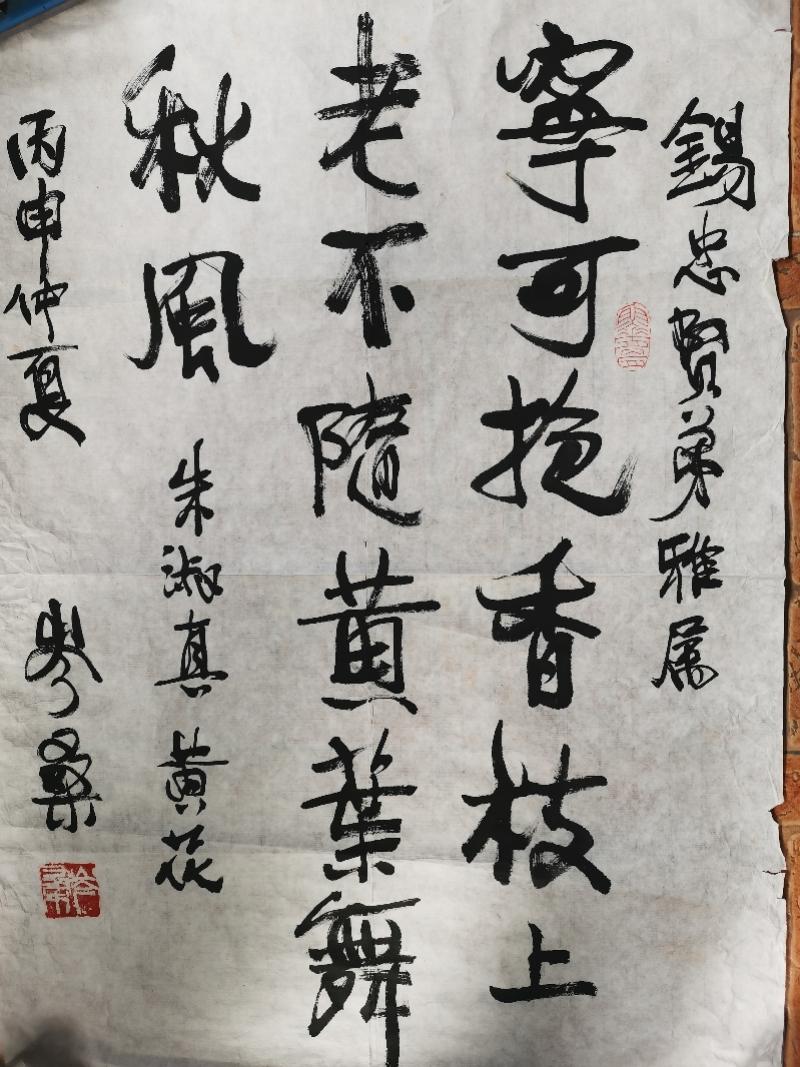 錫忠賢弟雅属
寧可抱香枝上
老不隨黄葉舞
秋風
朱淑真黄花
丙申仲夏
桑